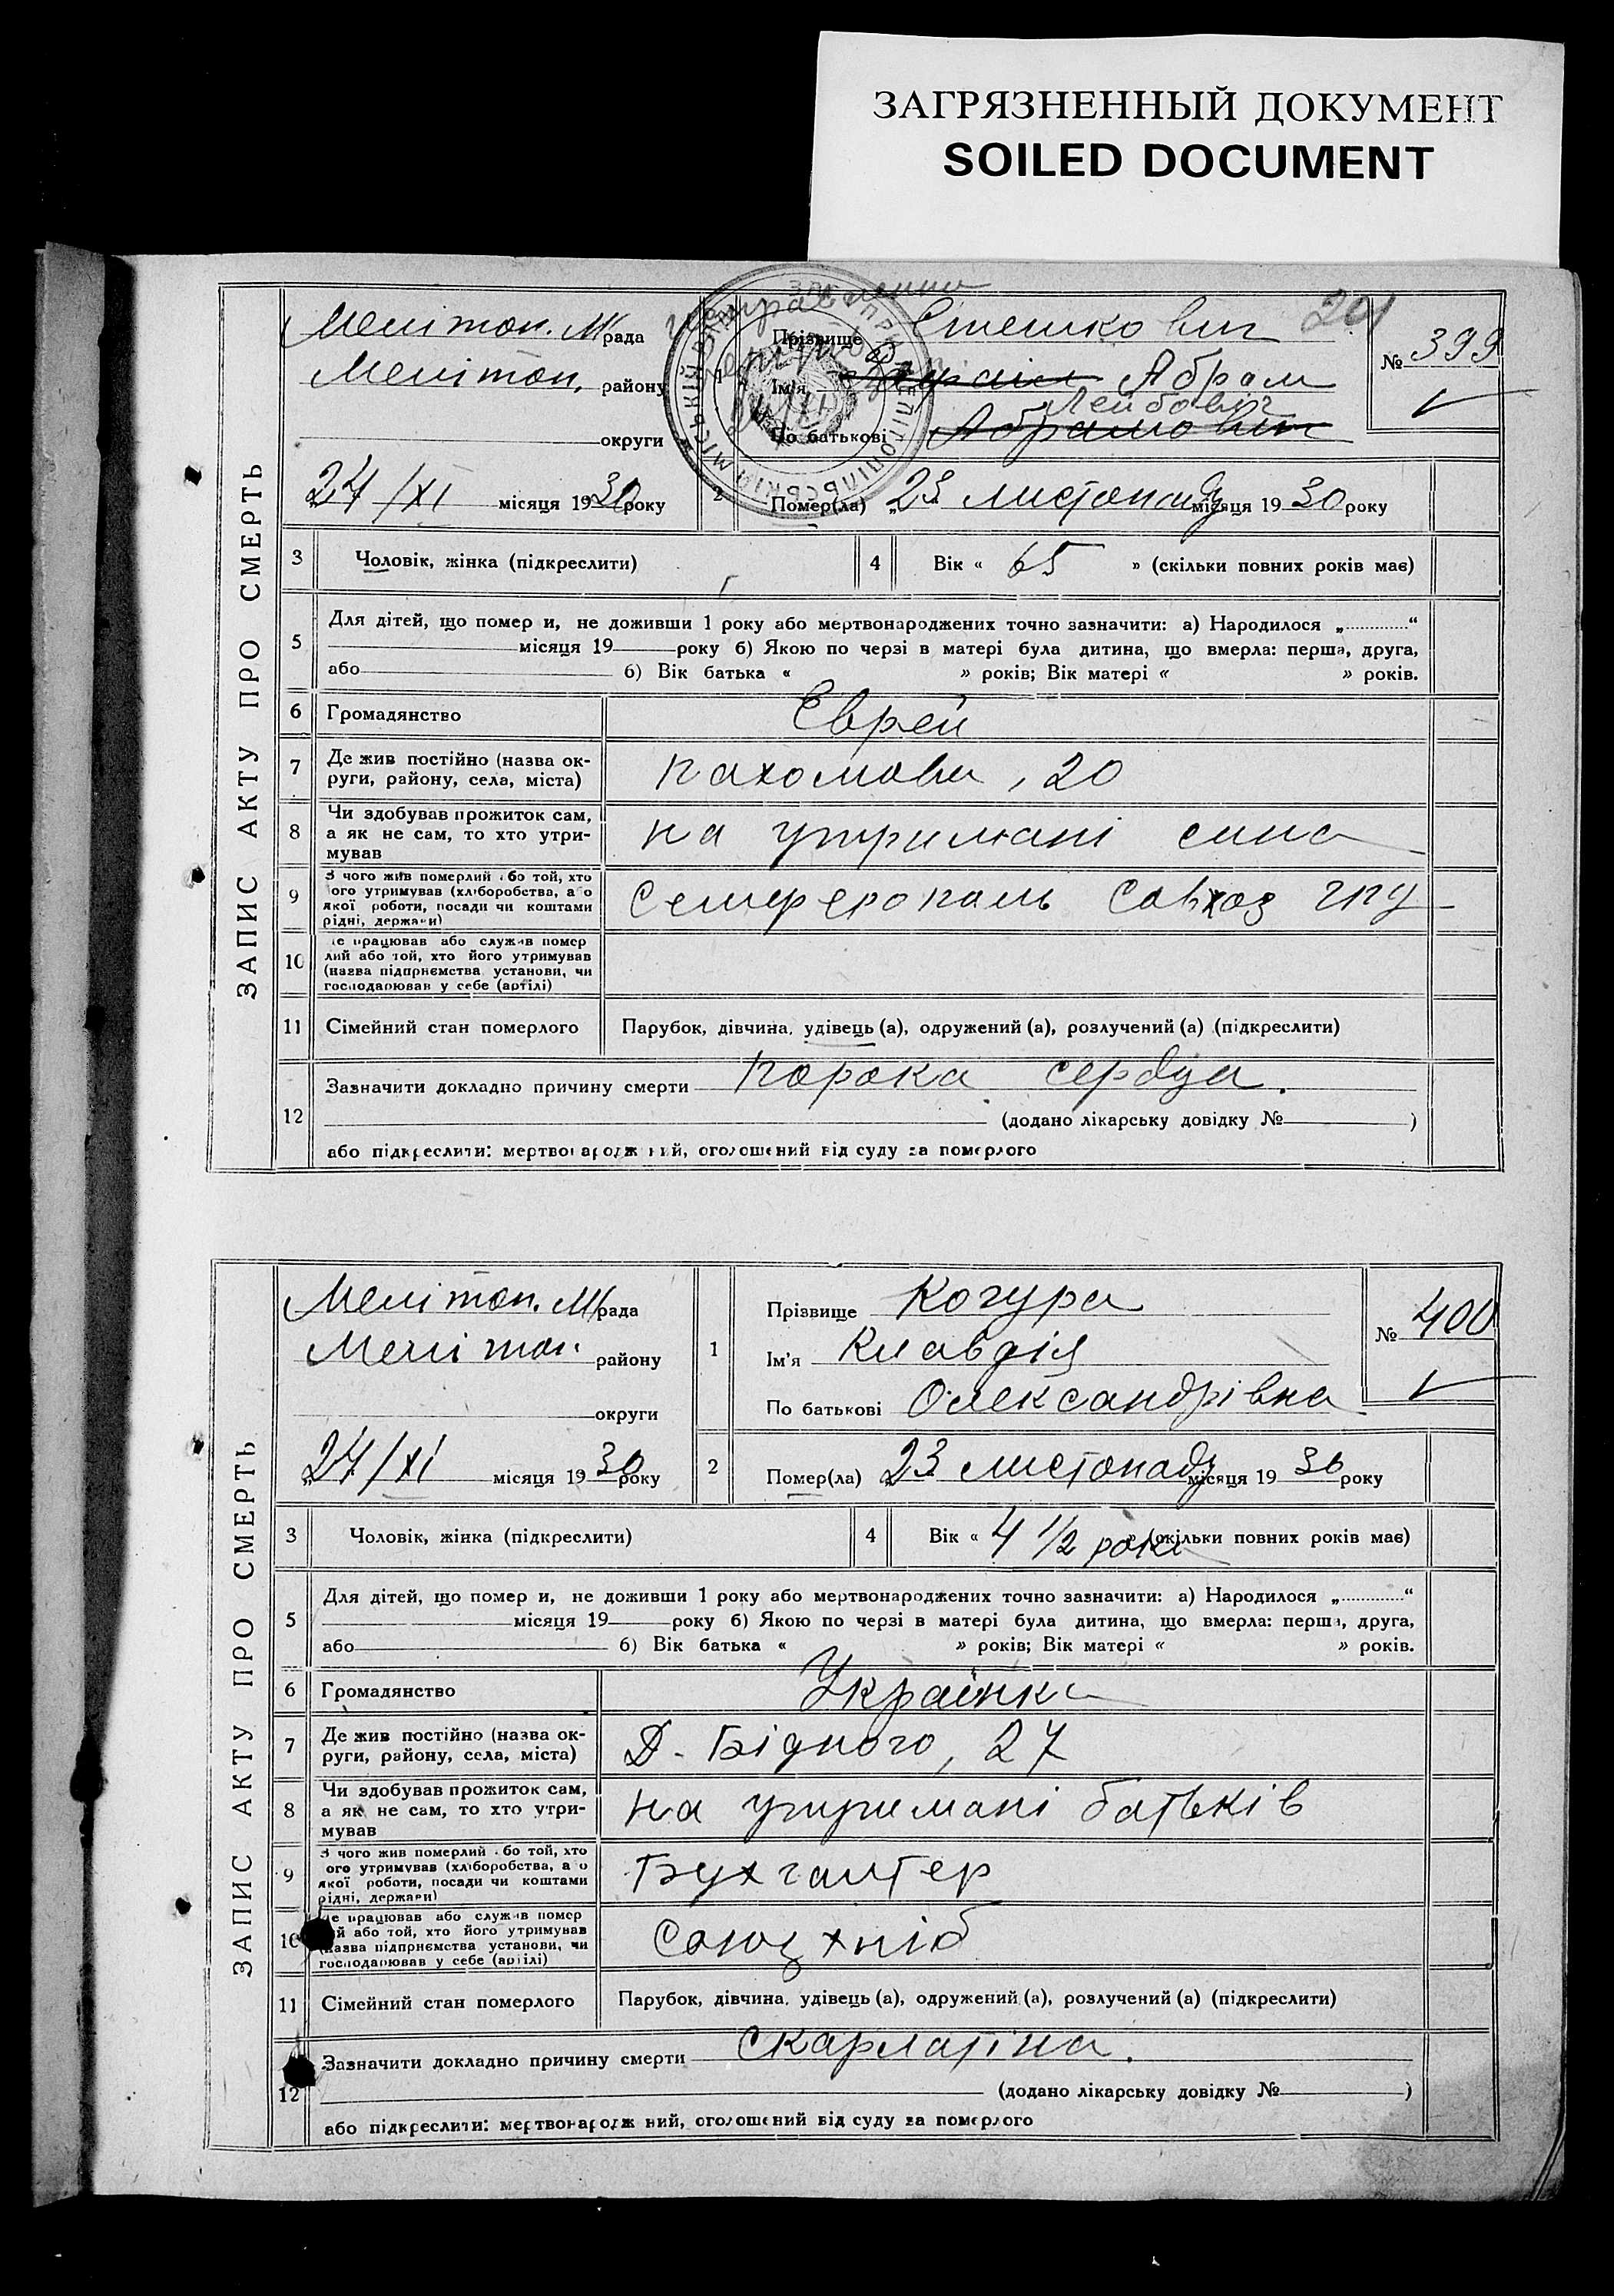 ЗАГРЯЗНЕННЫЙ ДОКУМЕНТ
SOILED DOCUMENT
ЗАПИС АКТУ ПРО СМЕРТЬ
Мелітоп. М/рада
Мелітоп. району
округи
24/XI місяця 1930 року
1
Прізвище Стешкович
Ім'я Абрам
Лейбович
По батькові Абрамович
201
№ 399
2
Помер(ла) „23 листопаду місяця 1930 року
3 Чоловік, жінка (підкреслити)
4 Вік « 65 » (скільки повних років має)
5 Для дітей, що помер и, не доживши 1 року або мертвонароджених точно зазначити: а) Народилося „............“
місяця 19 року б) Якою по черзі в матері була дитина, що вмерла: перша, друга,
або б) Вік батька « » років; Вік матері « » років.
6 Громадянство Єврей
7 Де жив постійно (назва ок-
руги, району, села, міста) Пахомова, 20
8 Чи здобував прожиток сам,
а як не сам, то хто утри-
мував на утримані сина
9 З чого жив померлий або той, хто
ого утримував (хліборобства, а о
якої роботи, посади чи коштами
рідні, держави) Семферопаль Савхоз ГПУ
10 е працював або служив помер
лий або той, хто його утримував
(назва підприємства установи, чи
господарював у себе (артілі)
11 Сімейний стан померлого Парубок, дівчина, удівець (а), одружений (а), розлучений (а) (підкреслити)
12 Зазначити докладно причину смерти Порока сердца.
(додано лікарську довідку № )
або підкреслити: мертвонароджений, оголошений від суду за померлого
ЗАПИС АКТУ ПРО СМЕРТЬ
Мелітоп. М/рада
Мелітоп. району
округи
„24/XI місяця 1930 року
1
Прізвище Когура
Ім'я Клавдія
По батькові Олександрівна
№ 400
2
Помер(ла) 23 листопаду місяця 1930 року
3 Чоловік, жінка (підкреслити)
4 Вік « 4 1/2 роки » (скільки повних років має)
5 Для дітей, що помер и, не доживши 1 року або мертвонароджених точно зазначити: а) Народилося „............“
місяця 19 року б) Якою по черзі в матері була дитина, що вмерла: перша, друга,
або б) Вік батька « » років; Вік матері « » років.
6 Громадянство Українка
7 Де жив постійно (назва ок-
руги, району, села, міста) Д. Бідного, 27
8 Чи здобував прожиток сам,
а як не сам, то хто утри-
мував на утримані батьків
9 З чого жив померлий або той, хто
ого утримував (хліборобства, а о
якої роботи, посади чи коштами
рідні, держави) Бухгалтер
10 е працював або служив помер
й або той, хто його утримував
назва підприємства установи, чи
господарював у себе (артілі) Союзхліб
11 Сімейний стан померлого Парубок, дівчина, удівець (а), одружений (а), розлучений (а) (підкреслити)
12 Зазначити докладно причину смерти Скарлатіна.
(додано лікарську довідку № )
або підкреслити: мертвонароджений, оголошений від суду за померлого